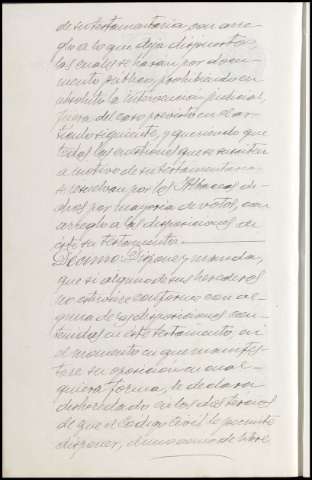 de su testamentaria, con arre-
glo a lo que deja dispuesto,
las cuales se haran por docu-
mento público, prohibiendo en
absoluto la intervencion judicial,
fuera del caso previsto en el ar-
tículo siguiente, y queriendo que
todas las cuestiones que se susciten
a motivo de su testamentaria
se resuelvan por los Albaceas di-
chos por mayoria de votos, con
arreglo a las disposiciones de
este su testamento.
Décimo: Dispone y manda,
que si alguno de sus herederos
no estuviere conforme con al-
guna de las disposiciones con-
tenidas en este testamento, en
el momento en que manifes-
tare su oposicion en cual-
quiera forma, le declara
desheredado en los dos tercios
de que el Codigo Civil le permite
disponer, como cuota de libre